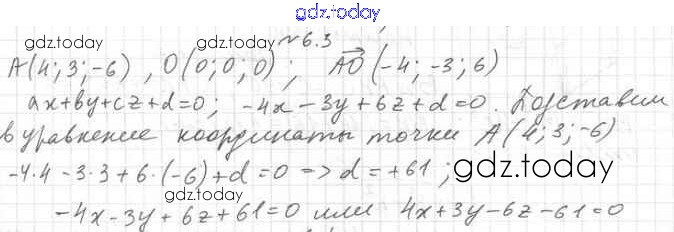 gdz.today
gdz.today gdz.today №6.3
A(4; 3; -6), O(0; 0; 0); AO→(-4; -3; 6)
ax+by+cz+d=0; -4x-3y+6z+d=0. Подставим
в уравнение координаты точки A(4; 3; -6)
-4·4-3·3+6·(-6)+d=0 => d=+61;
gdz.today gdz.today
-4x-3y+6z+61=0 или 4x+3y-6z-61=0